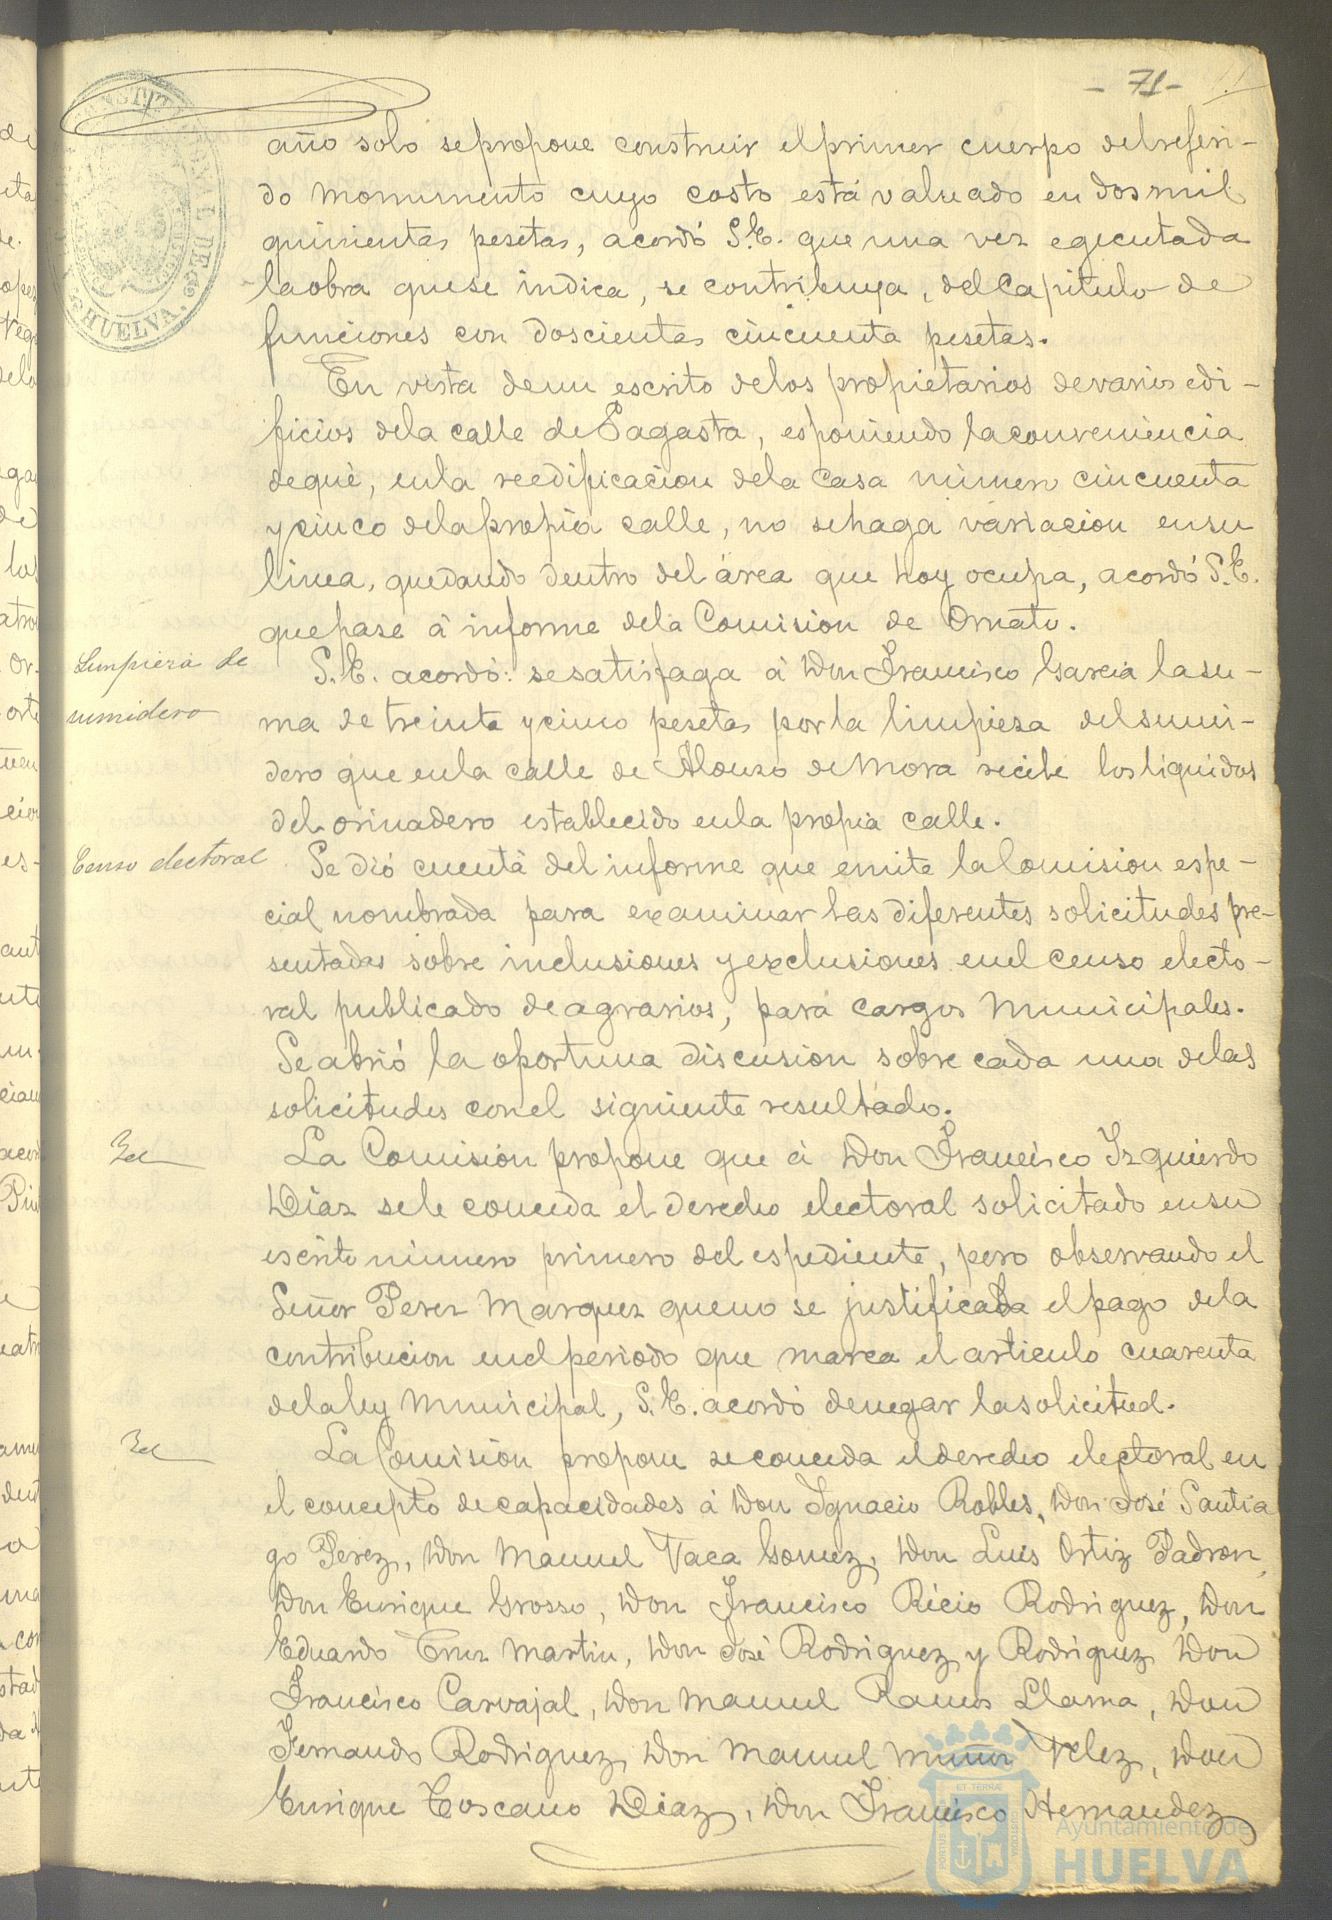 - 71 -
año solo se propone construir el primer cuerpo del referi-
do monumento cuyo costo está valuado en dos mil
quinientas pesetas, acordó S.E. que una vez egecutada
la obra que se indica, se contribuya, del Capitulo de
funciones con doscientas cincuenta pesetas.
En vista de un escrito de los propietarios de varios edi-
ficios de la calle de Sagasta, esponiendo la conveniencia
de que, en la reedificacion de la Casa numero cincuenta
y cinco de la propia calle, no se haga variacion en su
linea, quedando dentro del área que hoy ocupa, acordó S.E.
que pase á informe de la Comision de Ornato.
Limpieza de
sumidero
S.E. acordó: se satisfaga á Don Francisco Garcia la su-
ma de treinta y cinco pesetas por la limpieza del sumi-
dero que en la calle de Alonso de Mora recibe los liquidos
del orinadero establecido en la propia calle.
Censo electoral
Se dió cuenta del informe que emite la Comision espe-
cial nombrada para examinar las diferentes solicitudes pre-
sentadas sobre inclusiones y exclusiones en el censo electo-
ral publicado de agrarios, para cargos Municipales.
Se abrió la oportuna discusion sobre cada una de las
solicitudes con el siguiente resultado.
La Comisión propone que á Don Francisco Izquierdo
Diaz se le conceda el derecho electoral solicitado en su
escrito número primero del espediente, pero observando el
Señor Perez Marquez que no se justificaba el pago de la
contribucion en el periodo que marca el articulo cuarenta
de la ley Municipal, S.E. acordó denegar la solicitud.
La Comisión propone se conceda el derecho electoral en
el concepto de capacidades á Don Ignacio Robles, Don José Santia
go Perez, Don Manuel Vaca Gomez, Don Luis Ortiz Padron,
Don Enrique Grosso, Don Francisco Ricio Rodriguez, Don
Eduardo Cruz Martin, Don José Rodriguez y Rodriguez Don
Francisco Carvajal, Don Manuel Ramos Llama, Don
Fernando Rodriguez, Don Manuel Muñoz Velez, Don
Enrique Toscano Diaz, Don Francisco Hernandez
HUELVA
Ayuntamiento de
HUELVA